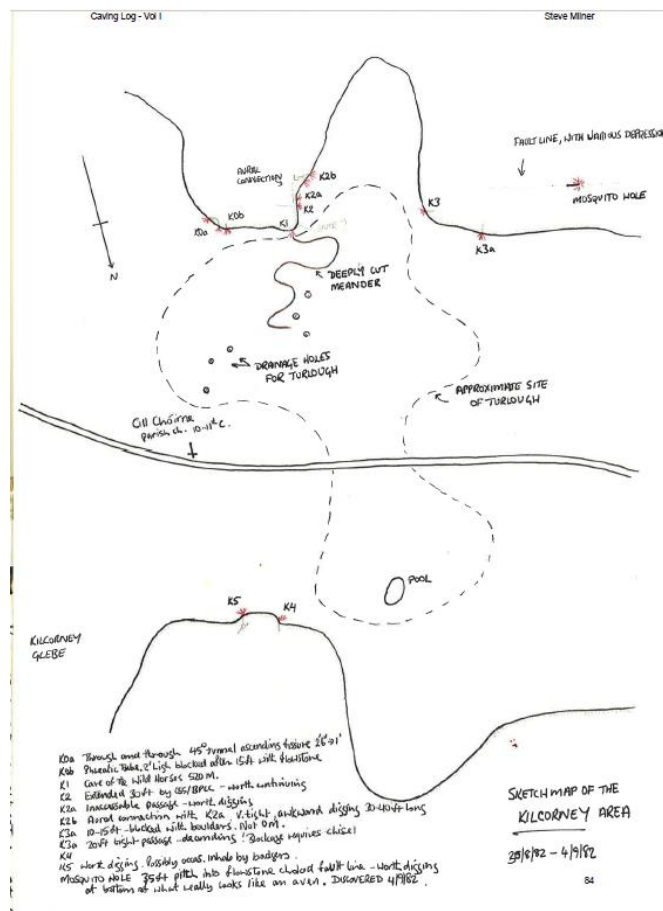 Caving Log - Vol I
Steve Milner
FAULT LINE, WITH VARIOUS DEPRESSION
AURAL
CONNECTION
K2b
K2a
K2
MOSQUITO HOLE
K3
K0a
K0b
K1
K3a
N
DEEPLY CUT
MEANDER
DRANAGE HOLES
FOR TURLOUGH
APPROXIMATE SITE
OF TURLOUGH
Cill Chóirne
parish ch. 10-11th C.
POOL
K5
K4
KILCORNEY
GLEBE
K0a Through and through 45° tunnel ascending fissure
K0b Phreatic Tube, 2' high blocked after 15ft with flowstone
K1 Cave of the Wild Horses 520m.
K2 Extended 30ft by CSS/BPCC - worth continuing
K2a Inaccessable passage - worth digging
K2b Aural connection with K2a. V. tight, awkward digging 30-40ft long
K3a 10-15ft - blocked with boulders. Not OM.
K3a 20ft tight passage - descending. Blockage requires chisel
K4
K5 worth digging. Possibly occas. inhab by badgers.
MOSQUITO HOLE 35ft pitch into flowstone choked fault line - worth digging
at bottom of what really looks like an aven. DISCOVERED 4/9/82.
SKETCH MAP OF THE
KILCORNEY AREA
/8/82 - 4/9/82
84